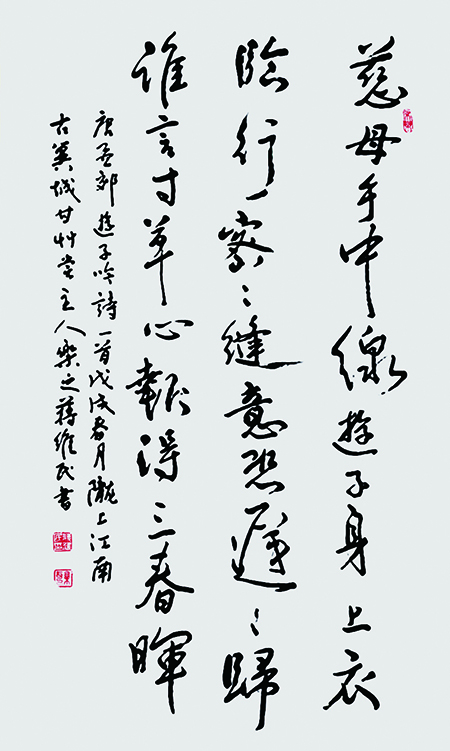 慈母手中線遊子身上衣
臨行密〻縫意恐遲〻歸
誰言寸草心報得三春暉
唐孟郊遊子吟詩一首戊戌春月隴上江南
古冀城甘艸堂主人樂之蔣維民書